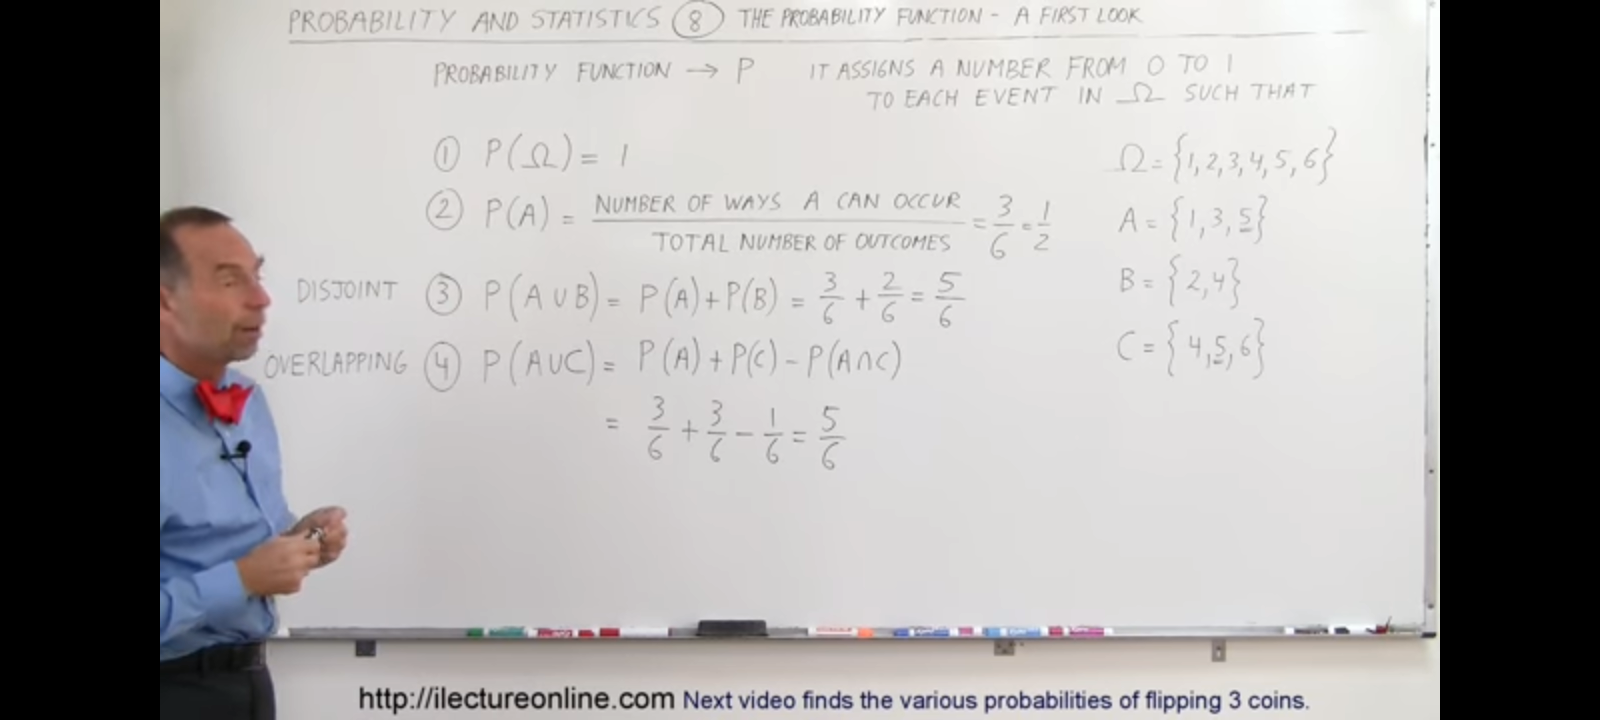 PROBABILITY AND STATISTICS 8 THE PROBABILITY FUNCTION - A FIRST LOOK
PROBABILITY FUNCTION → P IT ASSIGNS A NUMBER FROM 0 TO 1
TO EACH EVENT IN Ω SUCH THAT
① P(Ω) = 1
② P(A) = NUMBER OF WAYS A CAN OCCUR / TOTAL NUMBER OF OUTCOMES = 3/6 = 1/2
DISJOINT ③ P(A∪B) = P(A)+P(B) = 3/6 + 2/6 = 5/6
OVERLAPPING ④ P(A∪C) = P(A)+P(C) - P(A∩C)
= 3/6 + 3/6 - 1/6 = 5/6
Ω = {1,2,3,4,5,6}
A = {1,3,5}
B = {2,4}
C = {4,5,6}
http://ilectureonline.com Next video finds the various probabilities of flipping 3 coins.